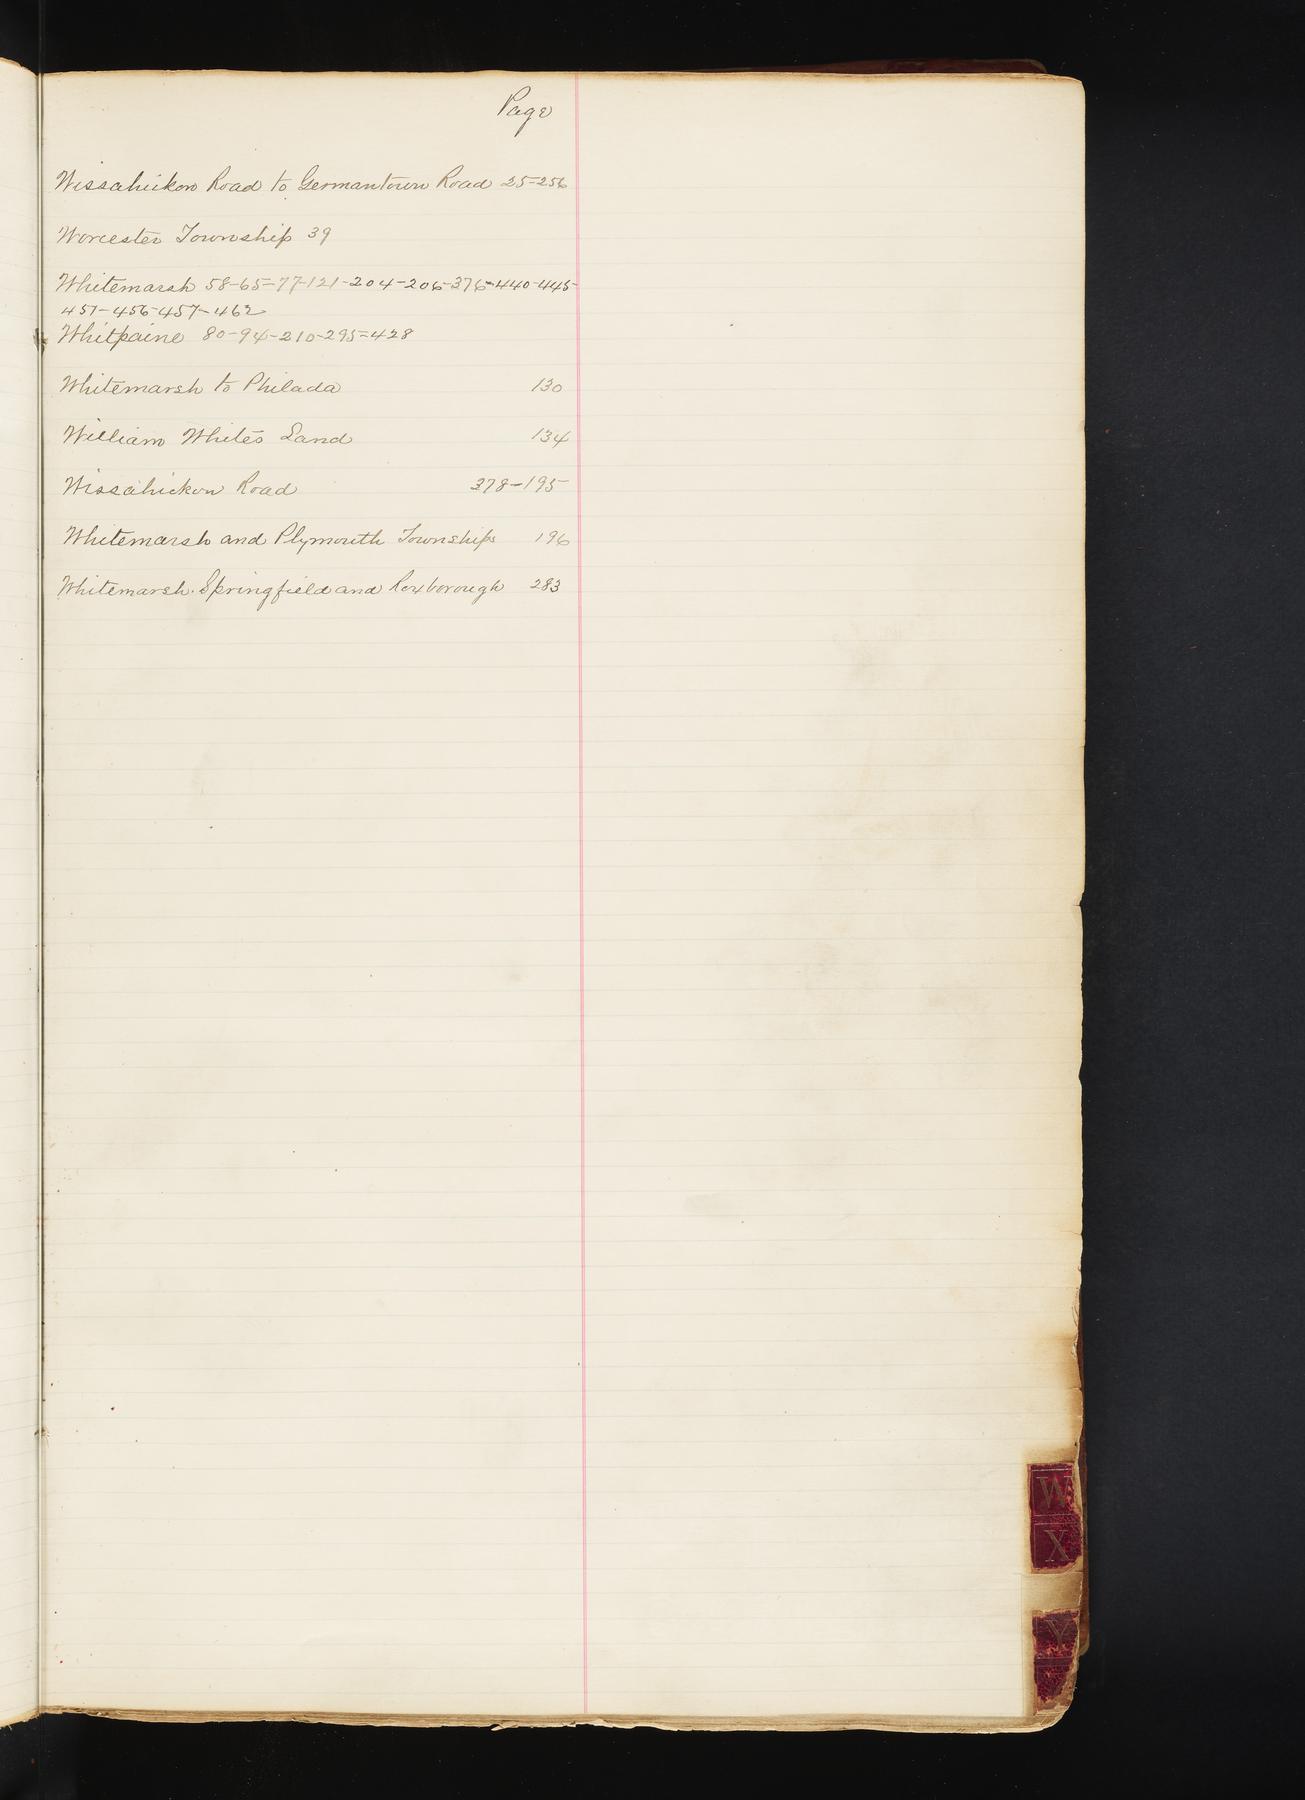 Page
Wissahickon Road to Germantown Road 25-256
Worcester Township 39
Whitemarsh 58-65-77-121-204-206-376-440-445-
451-456-457-462
Whitpaine 80-94-210-295-428
Whitemarsh to Philada 130
William Whites Land 134
Wissahickon Road 378-195
Whitemarsh and Plymouth Townships 196
Whitemarsh. Springfield and Roxborough 283
W
X
Y